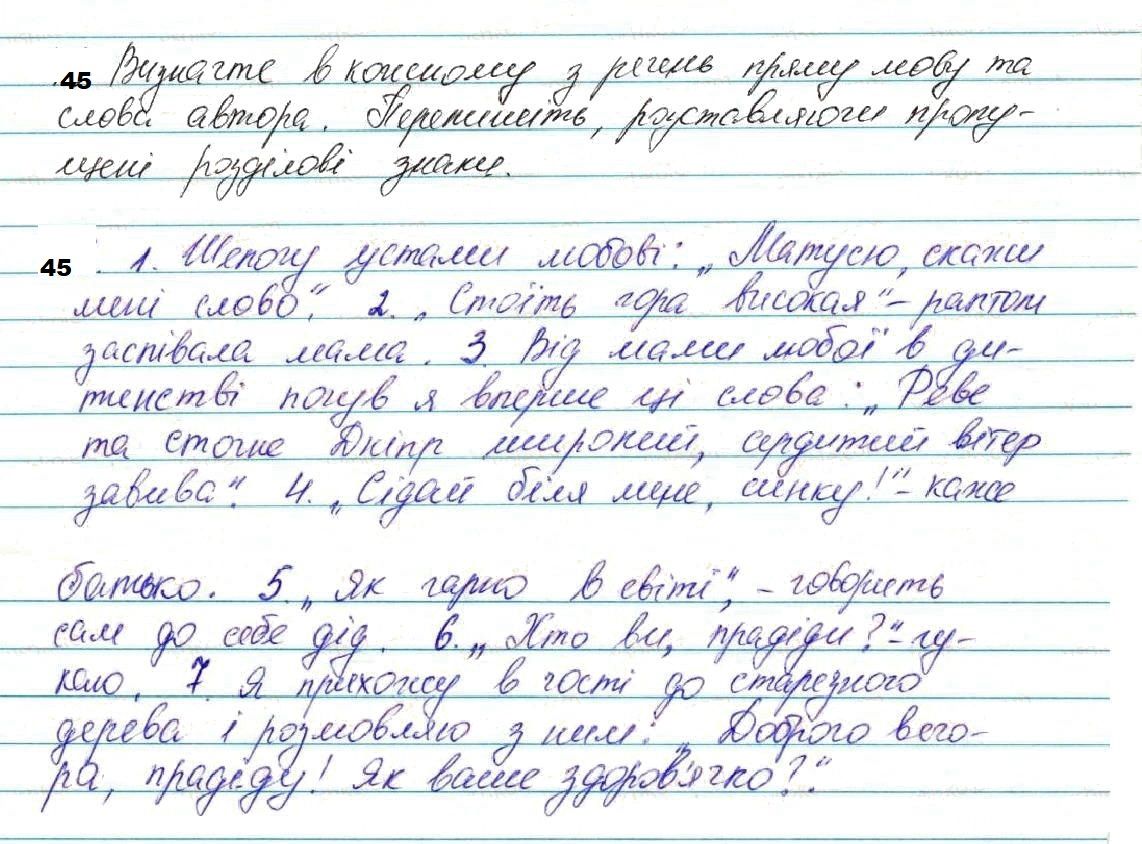 45 Визначте в кожному з речень пряму мову та
слова автора. Перепишіть, розставляючи пропу-
щені розділові знаки.
45 . 1. Шепочу устами любові: „Матусю, скажи
мені слово“. 2. „Стоїть гора високая“ – раптом
заспівала мама. 3. Від мами любої в ди-
тинстві почув я вперше ці слова: „Реве
та стогне Дніпр широкий, сердитий вітер
завива“. 4. „Сідай біля мене, синку!“ – каже
батько. 5. „Як гарно в світі“, – говорить
сам до себе дід. 6. „Хто ви, прадіди?“ – гу-
каю. 7. Я приходжу в гості до старезного
дерева і розмовляю з ним: „Доброго вечо-
ра, прадіду! Як ваше здоров'ячко?“